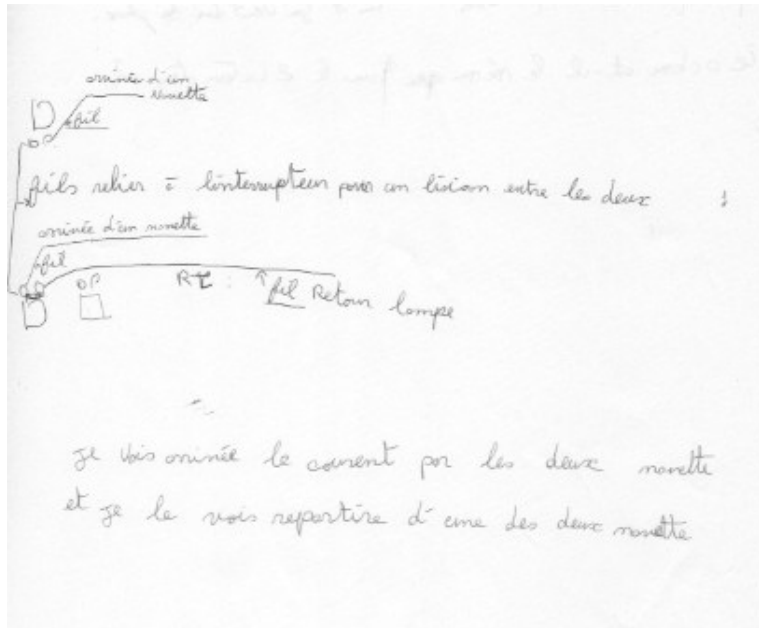 arrivée d'un
navette
fil
fils relier à l'interrupteur pour un liaison entre les deux
arrivée d'un navette
fil
RL : fil Retour lampe
je vois arrivée le courent par les deux navette
et je le vois repartire d'une des deux navette